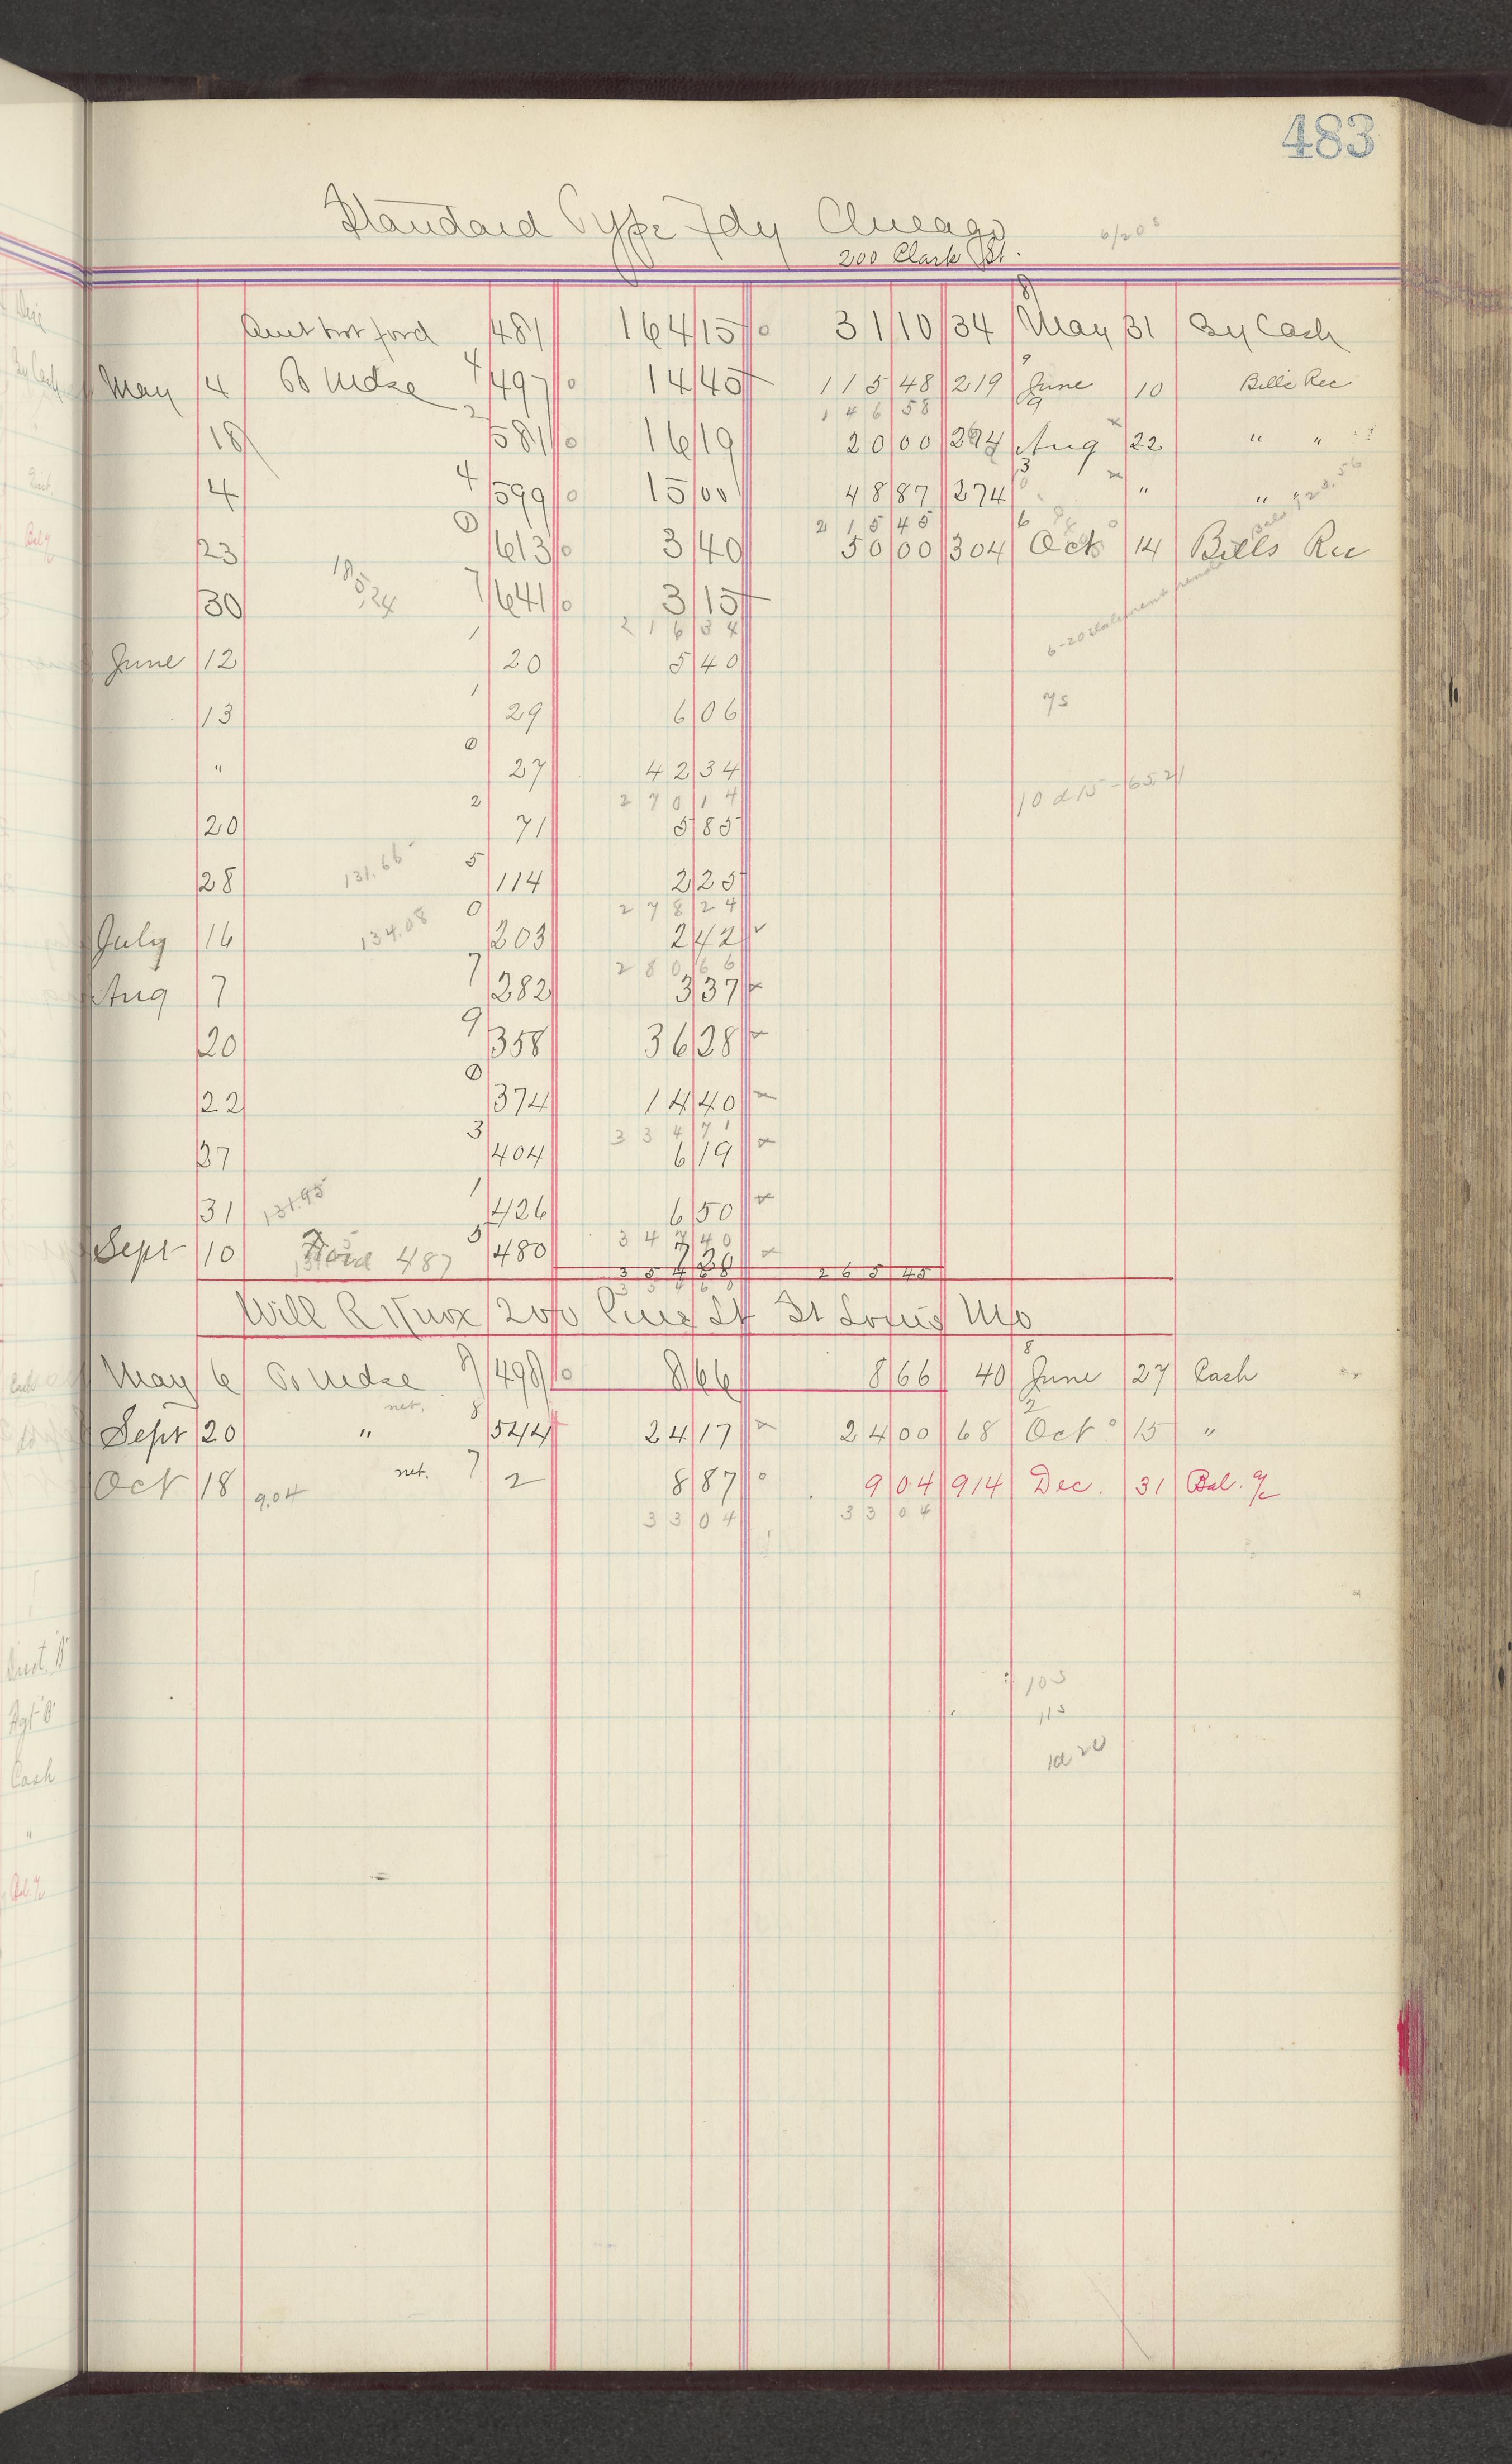 483
Standard Type Fdy Chicago 6/20s
200 Clark St.
Amt brt ford 481 164 15 31 10 34 May 31 By Cash
May 4 To Mdse 4 497 14 45 115 48 219 June 10 Bills Rec
146 58
18 2 581 16 19 20 00 274 Aug 22 " "
4 4 599 15 00 48 87 274 " " "
215 45
23 0 613 3 40 50 00 304 Oct 14 Bills Rec
185.24
30 7 641 3 15
216 34
June 12 1 20 5 40
13 1 29 6 06 7s
" 0 27 42 34
270 14 10 d 15 - 65.21
20 2 71 5 85
28 131.66 5 114 2 25
278 24
July 16 134.08 0 203 2 42
280 66
Aug 7 7 282 3 37
20 9 358 36 28
22 0 374 14 40
334 71
27 3 404 6 19
31 131.95 1 426 6 50
347 40
Sept 10 Ford 487 5 480 7 28
354 68 265 45
354 68
Will R Knox 200 Pine St St Louis Mo
May 6 To Mdse 8 498 8 66 8 66 40 June 27 Cash
Sept 20 " net. 8 544 24 17 24 00 68 Oct 15 "
Oct 18 9.04 net. 7 2 8 87 9 04 914 Dec. 31 Bal. a/c
33 04 33 04
10s
11s
10d 20